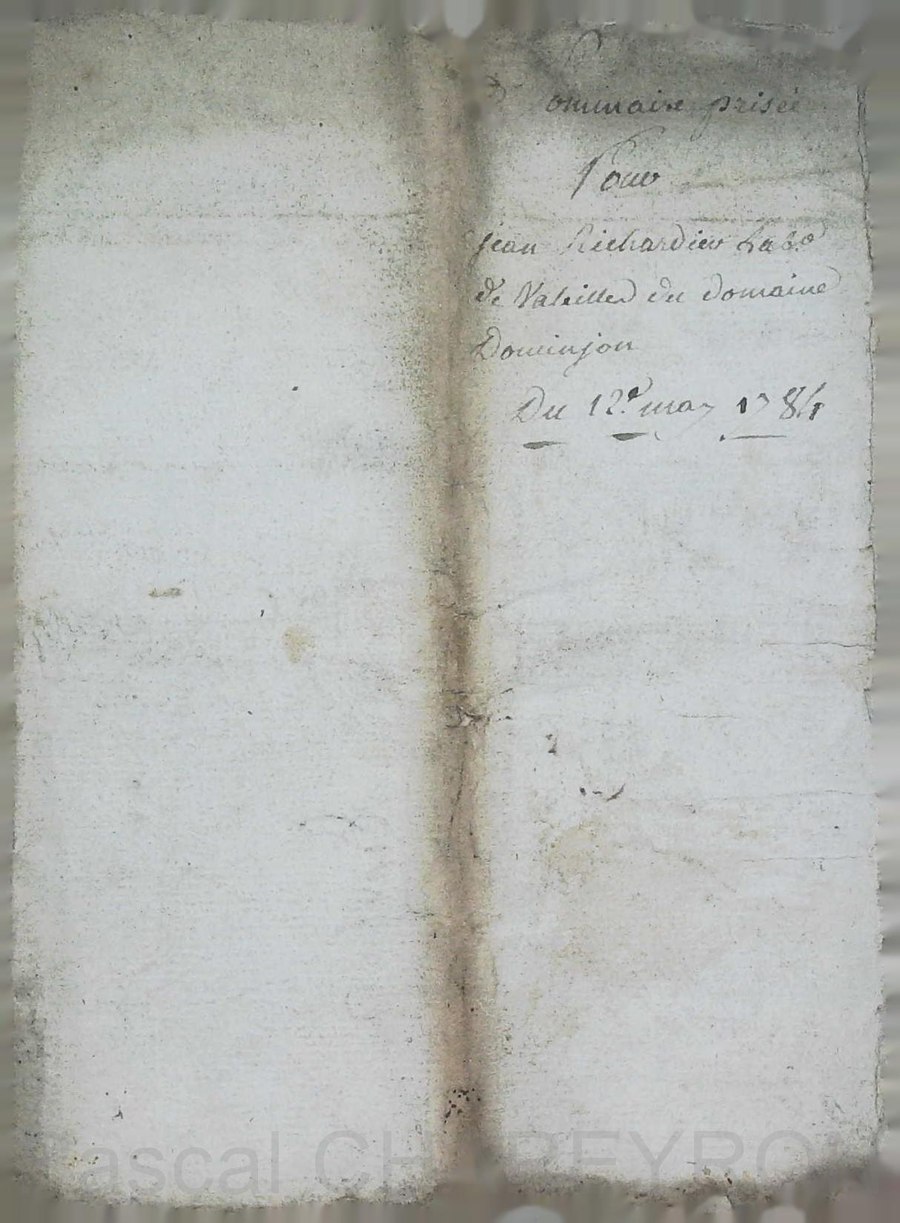 Sommaire prisée
Pour
Jean Richardier Labr
de Valeilles du domaine
Dominjon
Du 12e may 1784
Pascal CHAREYRON